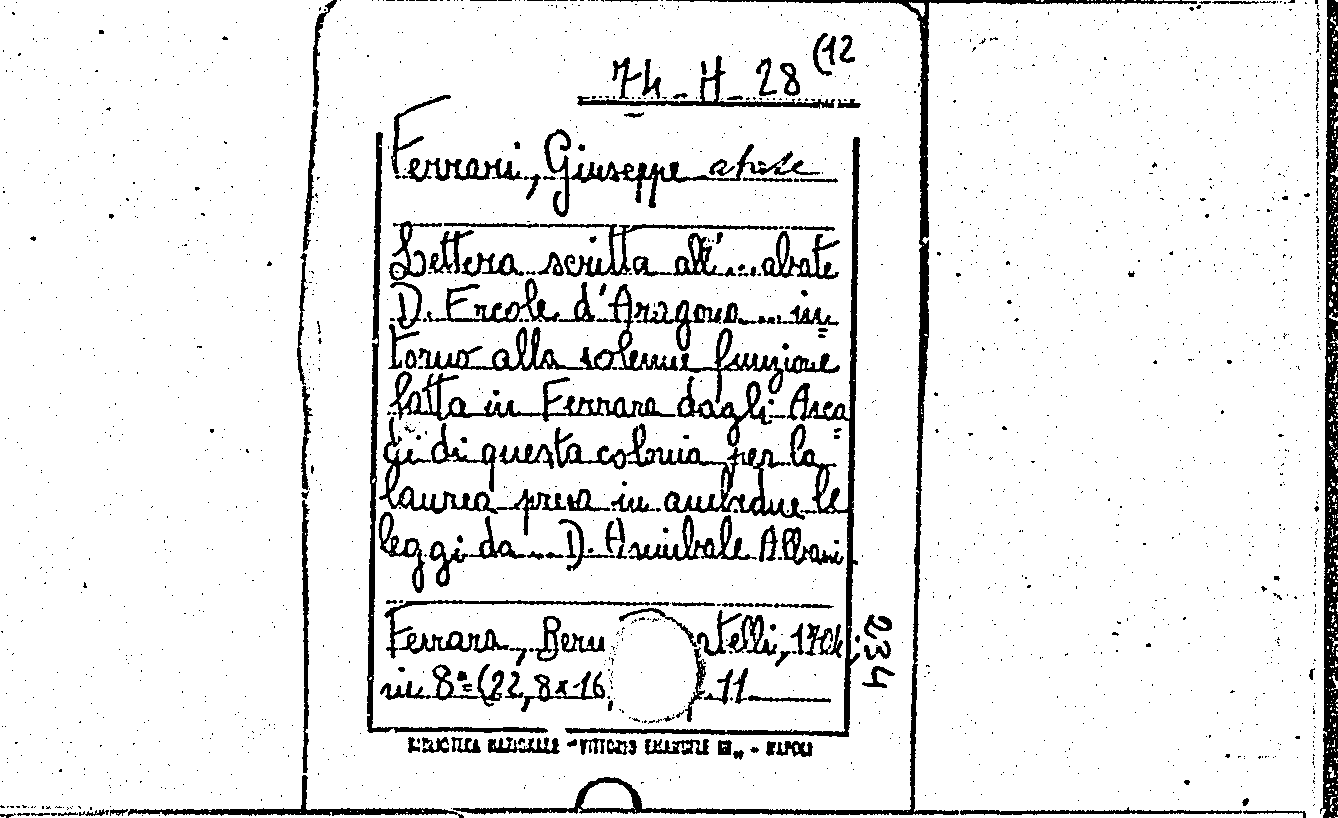 74_H_28 (12
Ferrari, Giuseppe abate
Lettera scritta all'...abate
D. Ercole d'Aragona... in=
torno alla solenne funzione
fatta in Ferrara dagli Arca=
di di questa colonia per la
laurea presa in ambedue le
leggi da... D. Annibale Albani.
Ferrara, Bern telli, 1704
in 8°=(22,8x16, 11
234
BIBLIOTECA NAZIONALE "VITTORIO EMANUELE III" - NAPOLI